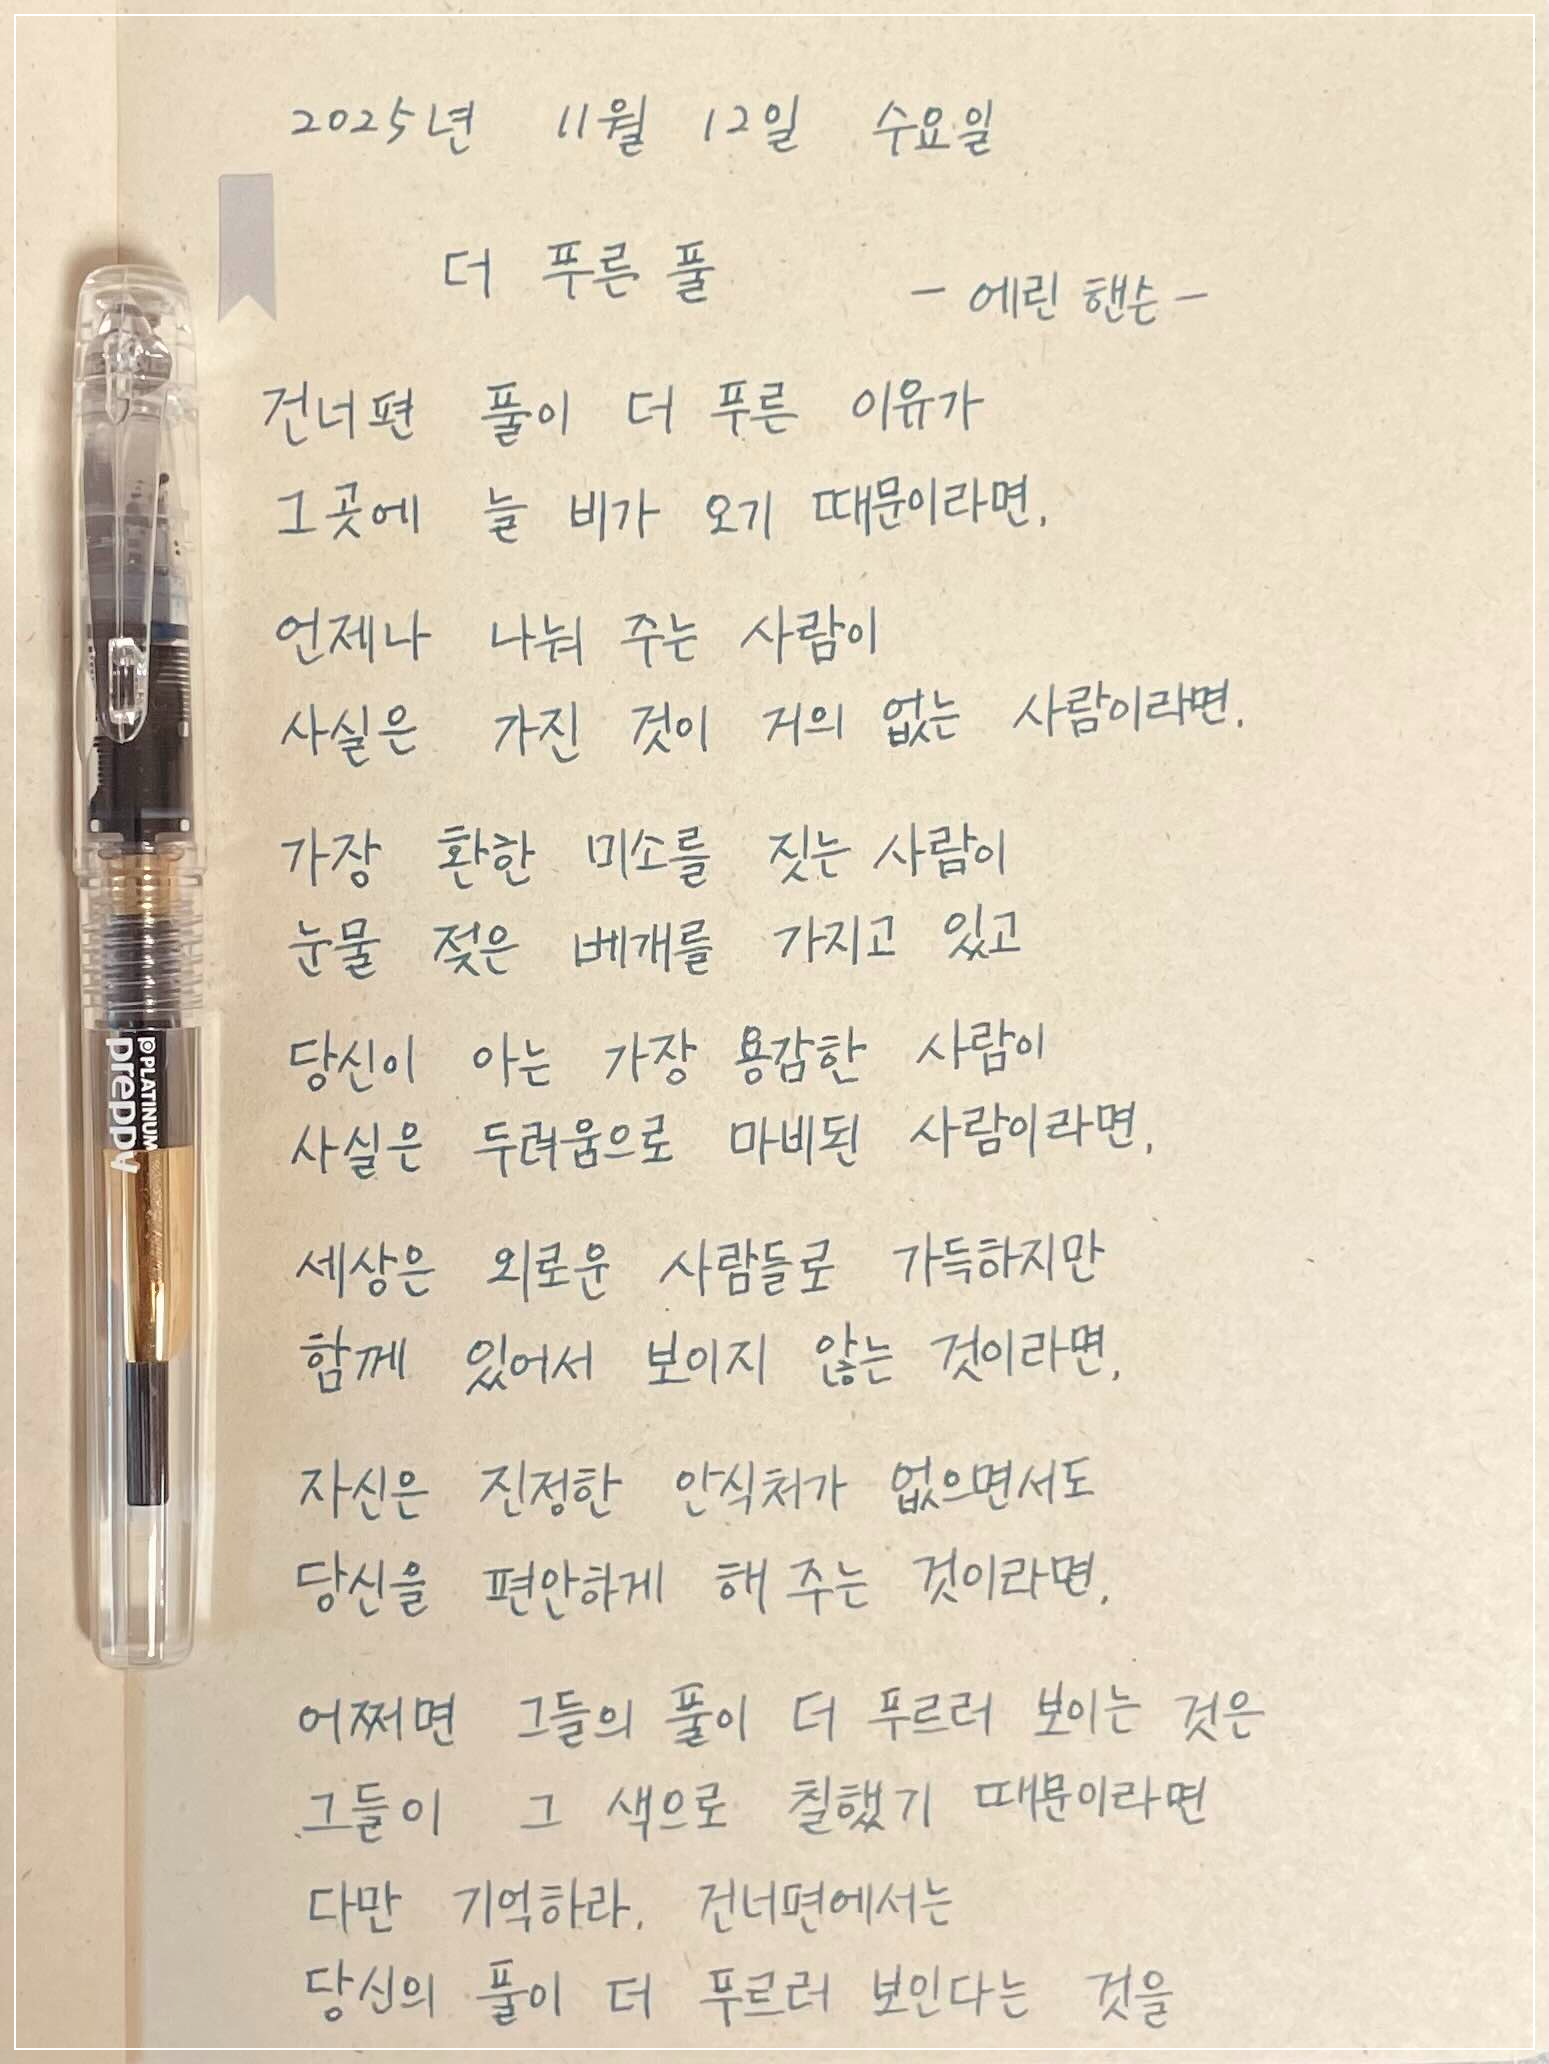 2025년 11월 12일 수요일
더 푸른 풀
- 에린 핸슨 -
건너편 풀이 더 푸른 이유가
그곳에 늘 비가 오기 때문이라면,
언제나 나눠 주는 사람이
사실은 가진 것이 거의 없는 사람이라면,
가장 환한 미소를 짓는 사람이
눈물 젖은 베개를 가지고 있고
당신이 아는 가장 용감한 사람이
사실은 두려움으로 마비된 사람이라면,
세상은 외로운 사람들로 가득하지만
함께 있어서 보이지 않는 것이라면,
자신은 진정한 안식처가 없으면서도
당신을 편안하게 해 주는 것이라면,
어쩌면 그들의 풀이 더 푸르러 보이는 것은
그들이 그 색으로 칠했기 때문이라면
다만 기억하라. 건너편에서는
당신의 풀이 더 푸르러 보인다는 것을
PLATINUM
preppy